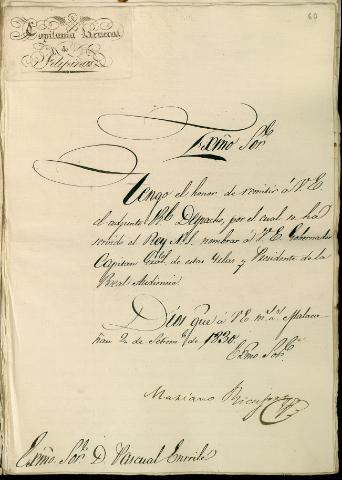 60
Capitania General
de
Filipinas
Exmo Sor.
Tengo el honor de remitir á V. E.
el adjunto Rl. Despacho, por el cual se ha
servido el Rey N. S. nombrar á V. E. Gobernador
Capitan Gral. de estas Yslas y Presidente de la
Real Audiencia.
Dios gue á V. E. ms. as. Malaca
ñan 2 de Setbre de 1830.
Exmo Sor.
Mariano Ricafort
Exmo. Sor. D. Pascual Enrile